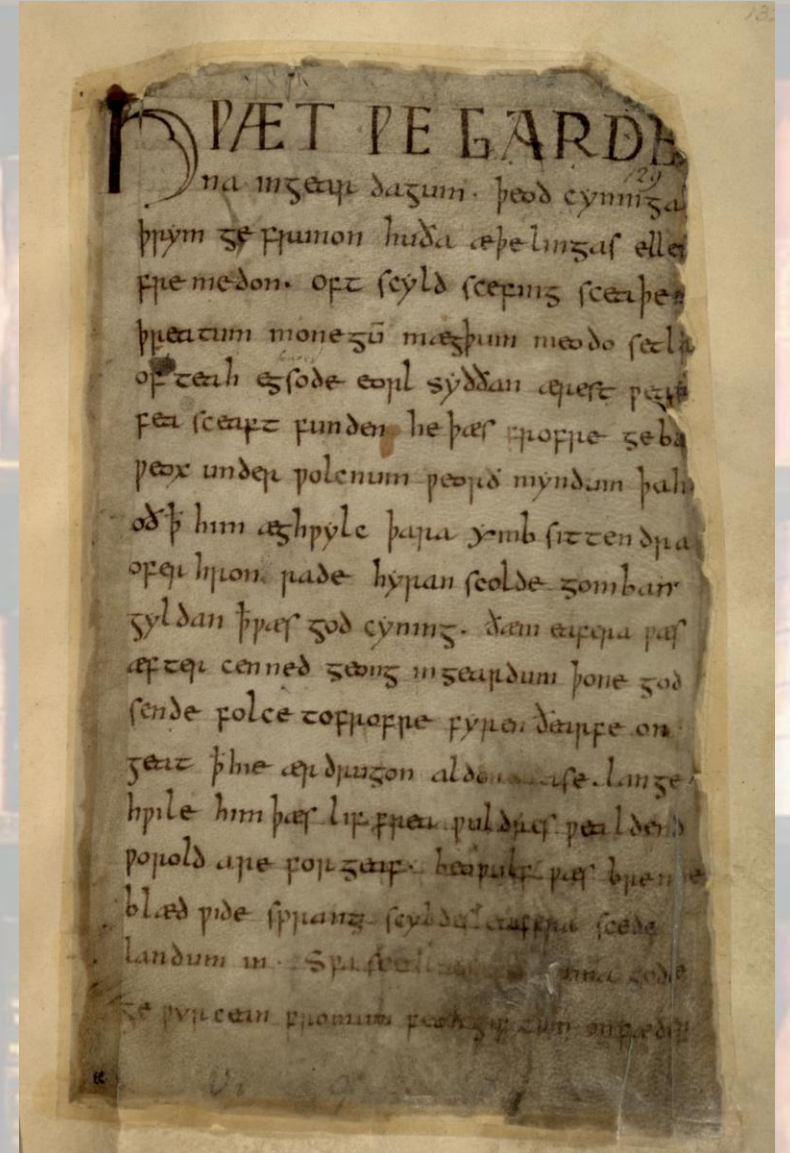 HǷÆT ǷE GARDE
na ingear dagum. þeod cyninga
þrym ge frunon huða æþelingas ellen
fremedon. oft scyld scefing sceaþena
þreatum monegū mægþum meodo setla
of teah egsode eorl syððan ærest ƿearð
fea sceaft funden he þæs frofre geba
ƿeox under ƿolcnum ƿeorð myndum þah
oð ꝥ him æghƿylc þara ymb sittendra
ofer hron rade hyran scolde gomban
gyldan ꝥ ƿæs god cyning. ðæm eafera ƿæs
æfter cenned geong ingeardum þone god
sende folce tofrofre fyren ðearfe on
geat ꝥ hie ær drugon aldor ase. lange
hƿile him þæs lif frea ƿuldres ƿealdend
ƿorold are for geaf. beoƿulf ƿæs breme
blæd ƿide sprang scyldes eafera scede
landum in. Sƿa sceal uma gode
ge ƿyrcean fromum feoh giftum